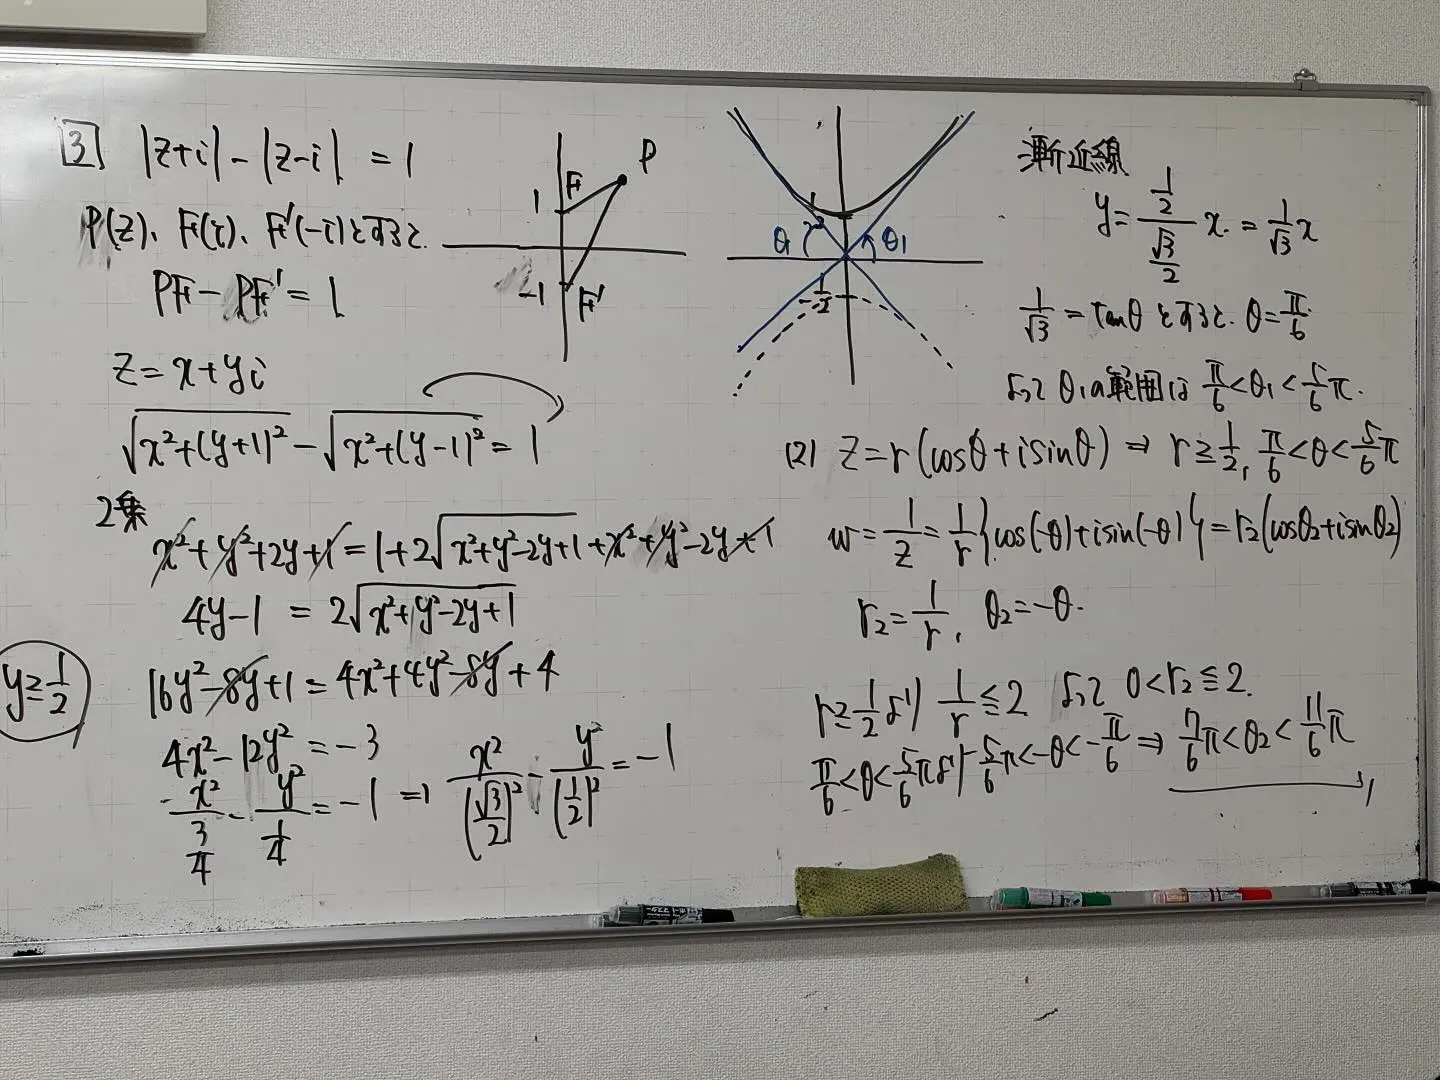 3 |z+i| - |z-i| = 1
P(z)、F(i)、F'(-i)とすると.
PF - PF' = 1
z = x+yi
√(x²+(y+1)²) - √(x²+(y-1)²) = 1
2乗
x²+y²+2y+1 = 1+2√(x²+y²-2y+1) + x²+y²-2y+1
4y-1 = 2√(x²+y²-2y+1)
16y²-8y+1 = 4x²+4y²-8y+4
y≧1/2
4x²-12y² = -3
x²/(3/4) - y²/(1/4) = -1 ⇒ x²/(√3/2)² - y²/(1/2)² = -1
P
F
1
-1
F'
θ
θ1
-1/2
漸近線
y = (1/2)/(√3/2) x. = 1/√3 x
1/√3 = tanθ とすると. θ=π/6.
よって θ1の範囲は π/6<θ1<5/6π.
(2) z=r(cosθ+isinθ) ⇒ r≧1/2, π/6<θ<5/6π
w = 1/z = 1/r{cos(-θ)+isin(-θ)} = r2(cosθ2+isinθ2)
r2=1/r, θ2=-θ.
r≧1/2より 1/r≦2 よって 0<r2≦2.
π/6<θ<5/6πより -5/6π<-θ<-π/6 ⇒ 7/6π<θ2<11/6π